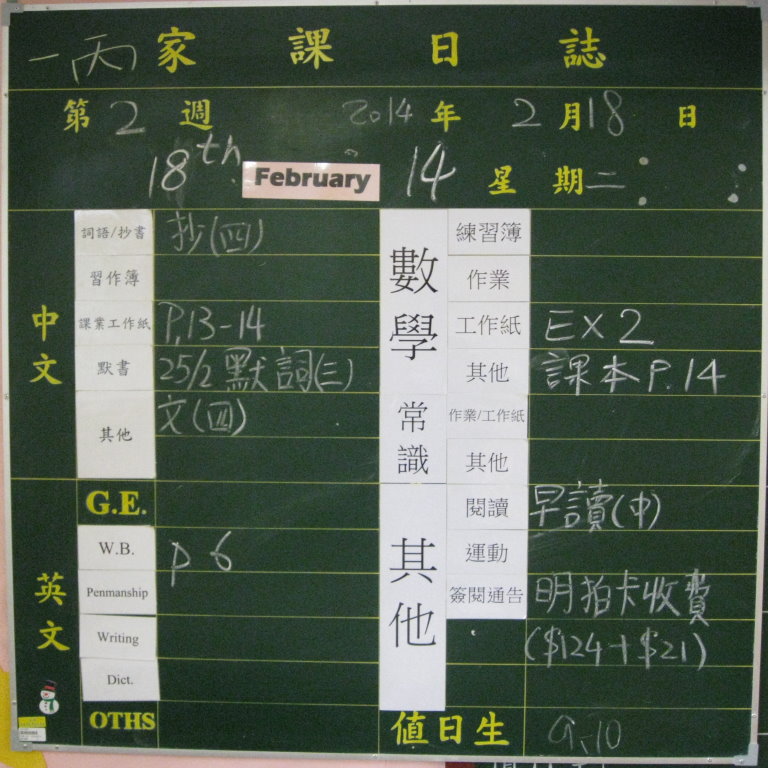 一丙 家課日誌
第2週 2014年2月18日
18th February 14 星期二
中文
詞語/抄書 抄(四)
習作簿
課業工作紙 P.13-14
默書 25/2 默詞(三)
其他 文(四)
英文
G.E.
W.B. P 6
Penmanship
Writing
Dict.
OTHS
數學
練習簿
作業
工作紙 EX 2
其他 課本P.14
常識
作業/工作紙
其他
其他
閱讀 早讀(中)
運動
簽閱通告 明拍卡收費
($124+$21)
值日生 9、10